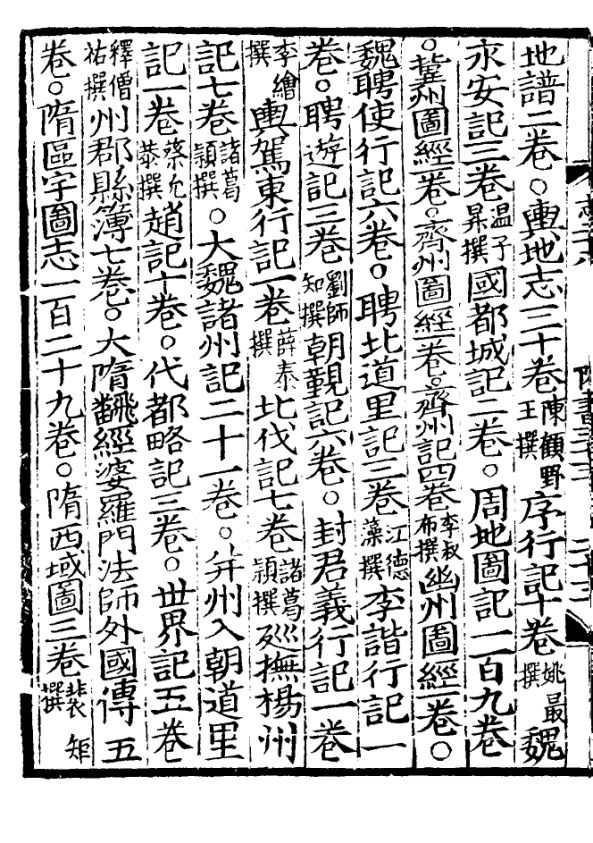 地譜二卷○輿地志三十卷陳顧野王撰序行記十卷姚最撰魏
永安記三卷温子昇撰國都城記二卷○周地圖記一百九卷
○冀州圖經一卷○齊州圖經一卷○齊州記四卷李叔布撰幽州圖經一卷○
魏聘使行記六卷○聘北道里記三卷江德藻撰李諧行記一
卷○聘遊記三卷劉師知撰朝覲記六卷○封君義行記一卷
李繪撰輿駕東行記一卷薛泰撰北伐記七卷諸葛頴撰巡撫楊州
記七卷諸葛頴撰○大魏諸州記二十一卷○并州入朝道里
記一卷蔡允恭撰趙記十卷○代都略記三卷○世界記五卷
釋僧祐撰州郡縣簿七卷○大隋翻經婆羅門法師外國傳五
卷○隋區宇圖志一百二十九卷○隋西域圖三卷裴矩撰